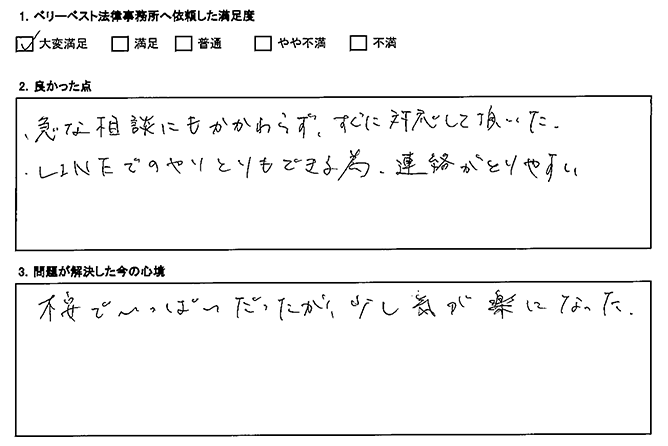 1. ベリーベスト法律事務所へ依頼した満足度
☑大変満足 □満足 □普通 □やや不満 □不満
2. 良かった点
・急な相談にもかかわらず、すぐに対応して頂いた.
・LINEでのやりとりもできる為、連絡がとりやすい
3. 問題が解決した今の心境
不安でいっぱいだったが、少し気が楽になった.